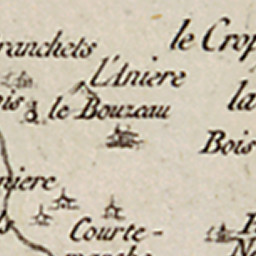 ranchets
le Crop
l'Aniere
le Bouzeau
la
Bois
niere
Courte-
manche